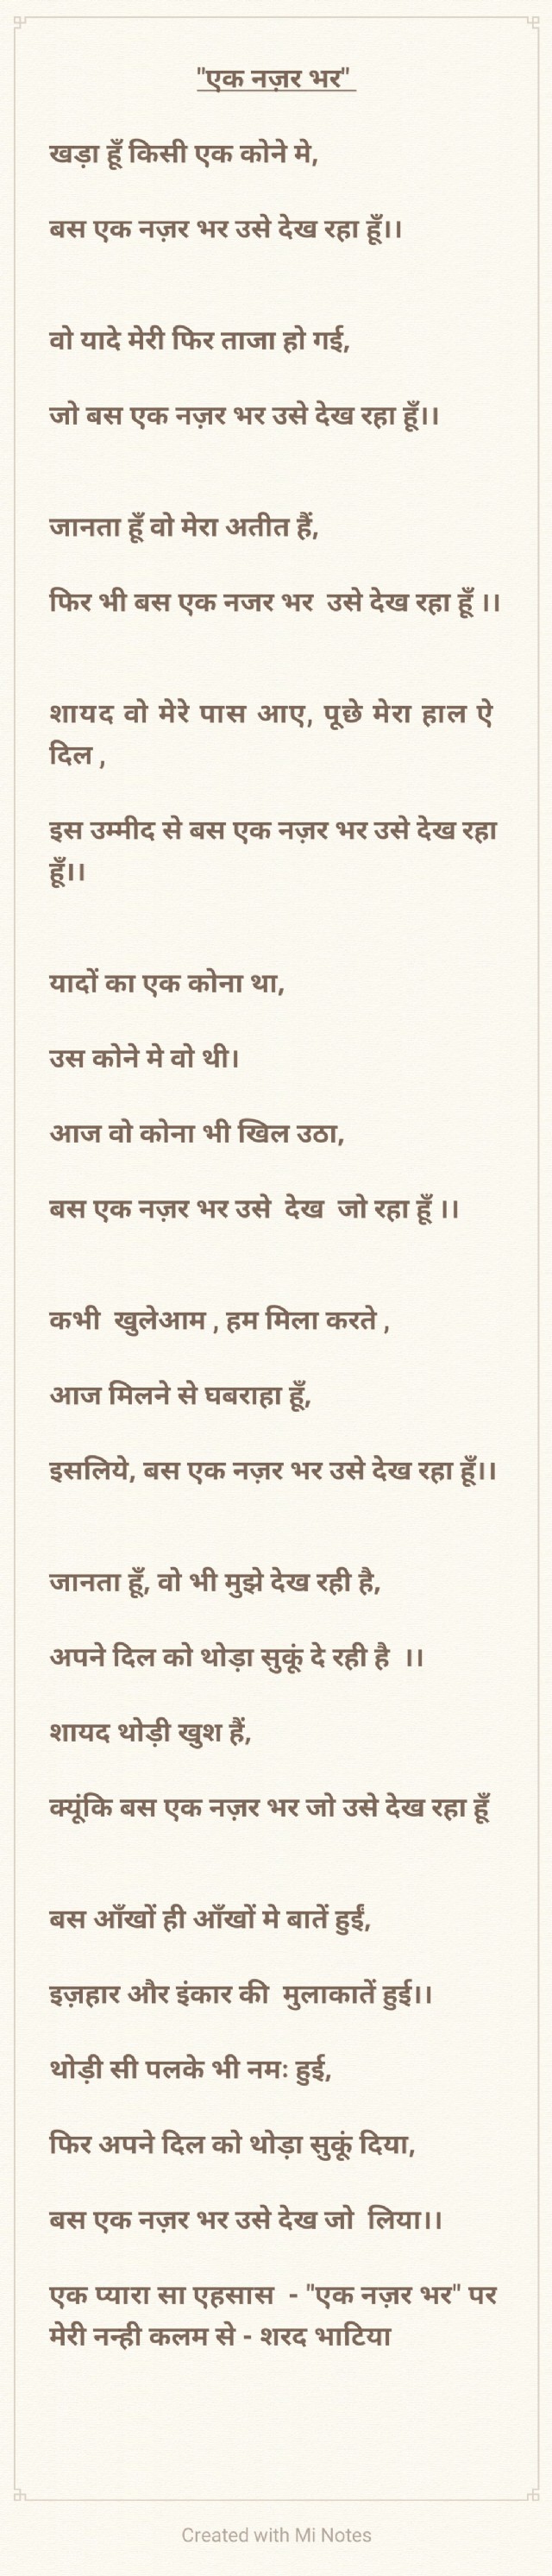 "एक नज़र भर"
खड़ा हूँ किसी एक कोने मे,
बस एक नज़र भर उसे देख रहा हूँ।।
वो यादे मेरी फिर ताजा हो गई,
जो बस एक नज़र भर उसे देख रहा हूँ।।
जानता हूँ वो मेरा अतीत हैं,
फिर भी बस एक नजर भर  उसे देख रहा हूँ ।।
शायद वो मेरे पास आए, पूछे मेरा हाल ऐ
दिल ,
इस उम्मीद से बस एक नज़र भर उसे देख रहा
हूँ।।
यादों का एक कोना था,
उस कोने मे वो थी।
आज वो कोना भी खिल उठा,
बस एक नज़र भर उसे  देख  जो रहा हूँ ।।
कभी  खुलेआम , हम मिला करते ,
आज मिलने से घबराहा हूँ,
इसलिये, बस एक नज़र भर उसे देख रहा हूँ।।
जानता हूँ, वो भी मुझे देख रही है,
अपने दिल को थोड़ा सुकूं दे रही है  ।।
शायद थोड़ी खुश हैं,
क्यूंकि बस एक नज़र भर जो उसे देख रहा हूँ
बस आँखों ही आँखों मे बातें हुईं,
इज़हार और इंकार की  मुलाकातें हुई।।
थोड़ी सी पलके भी नमः हुई,
फिर अपने दिल को थोड़ा सुकूं दिया,
बस एक नज़र भर उसे देख जो  लिया।।
एक प्यारा सा एहसास  - "एक नज़र भर" पर
मेरी नन्ही कलम से - शरद भाटिया
Created with Mi Notes